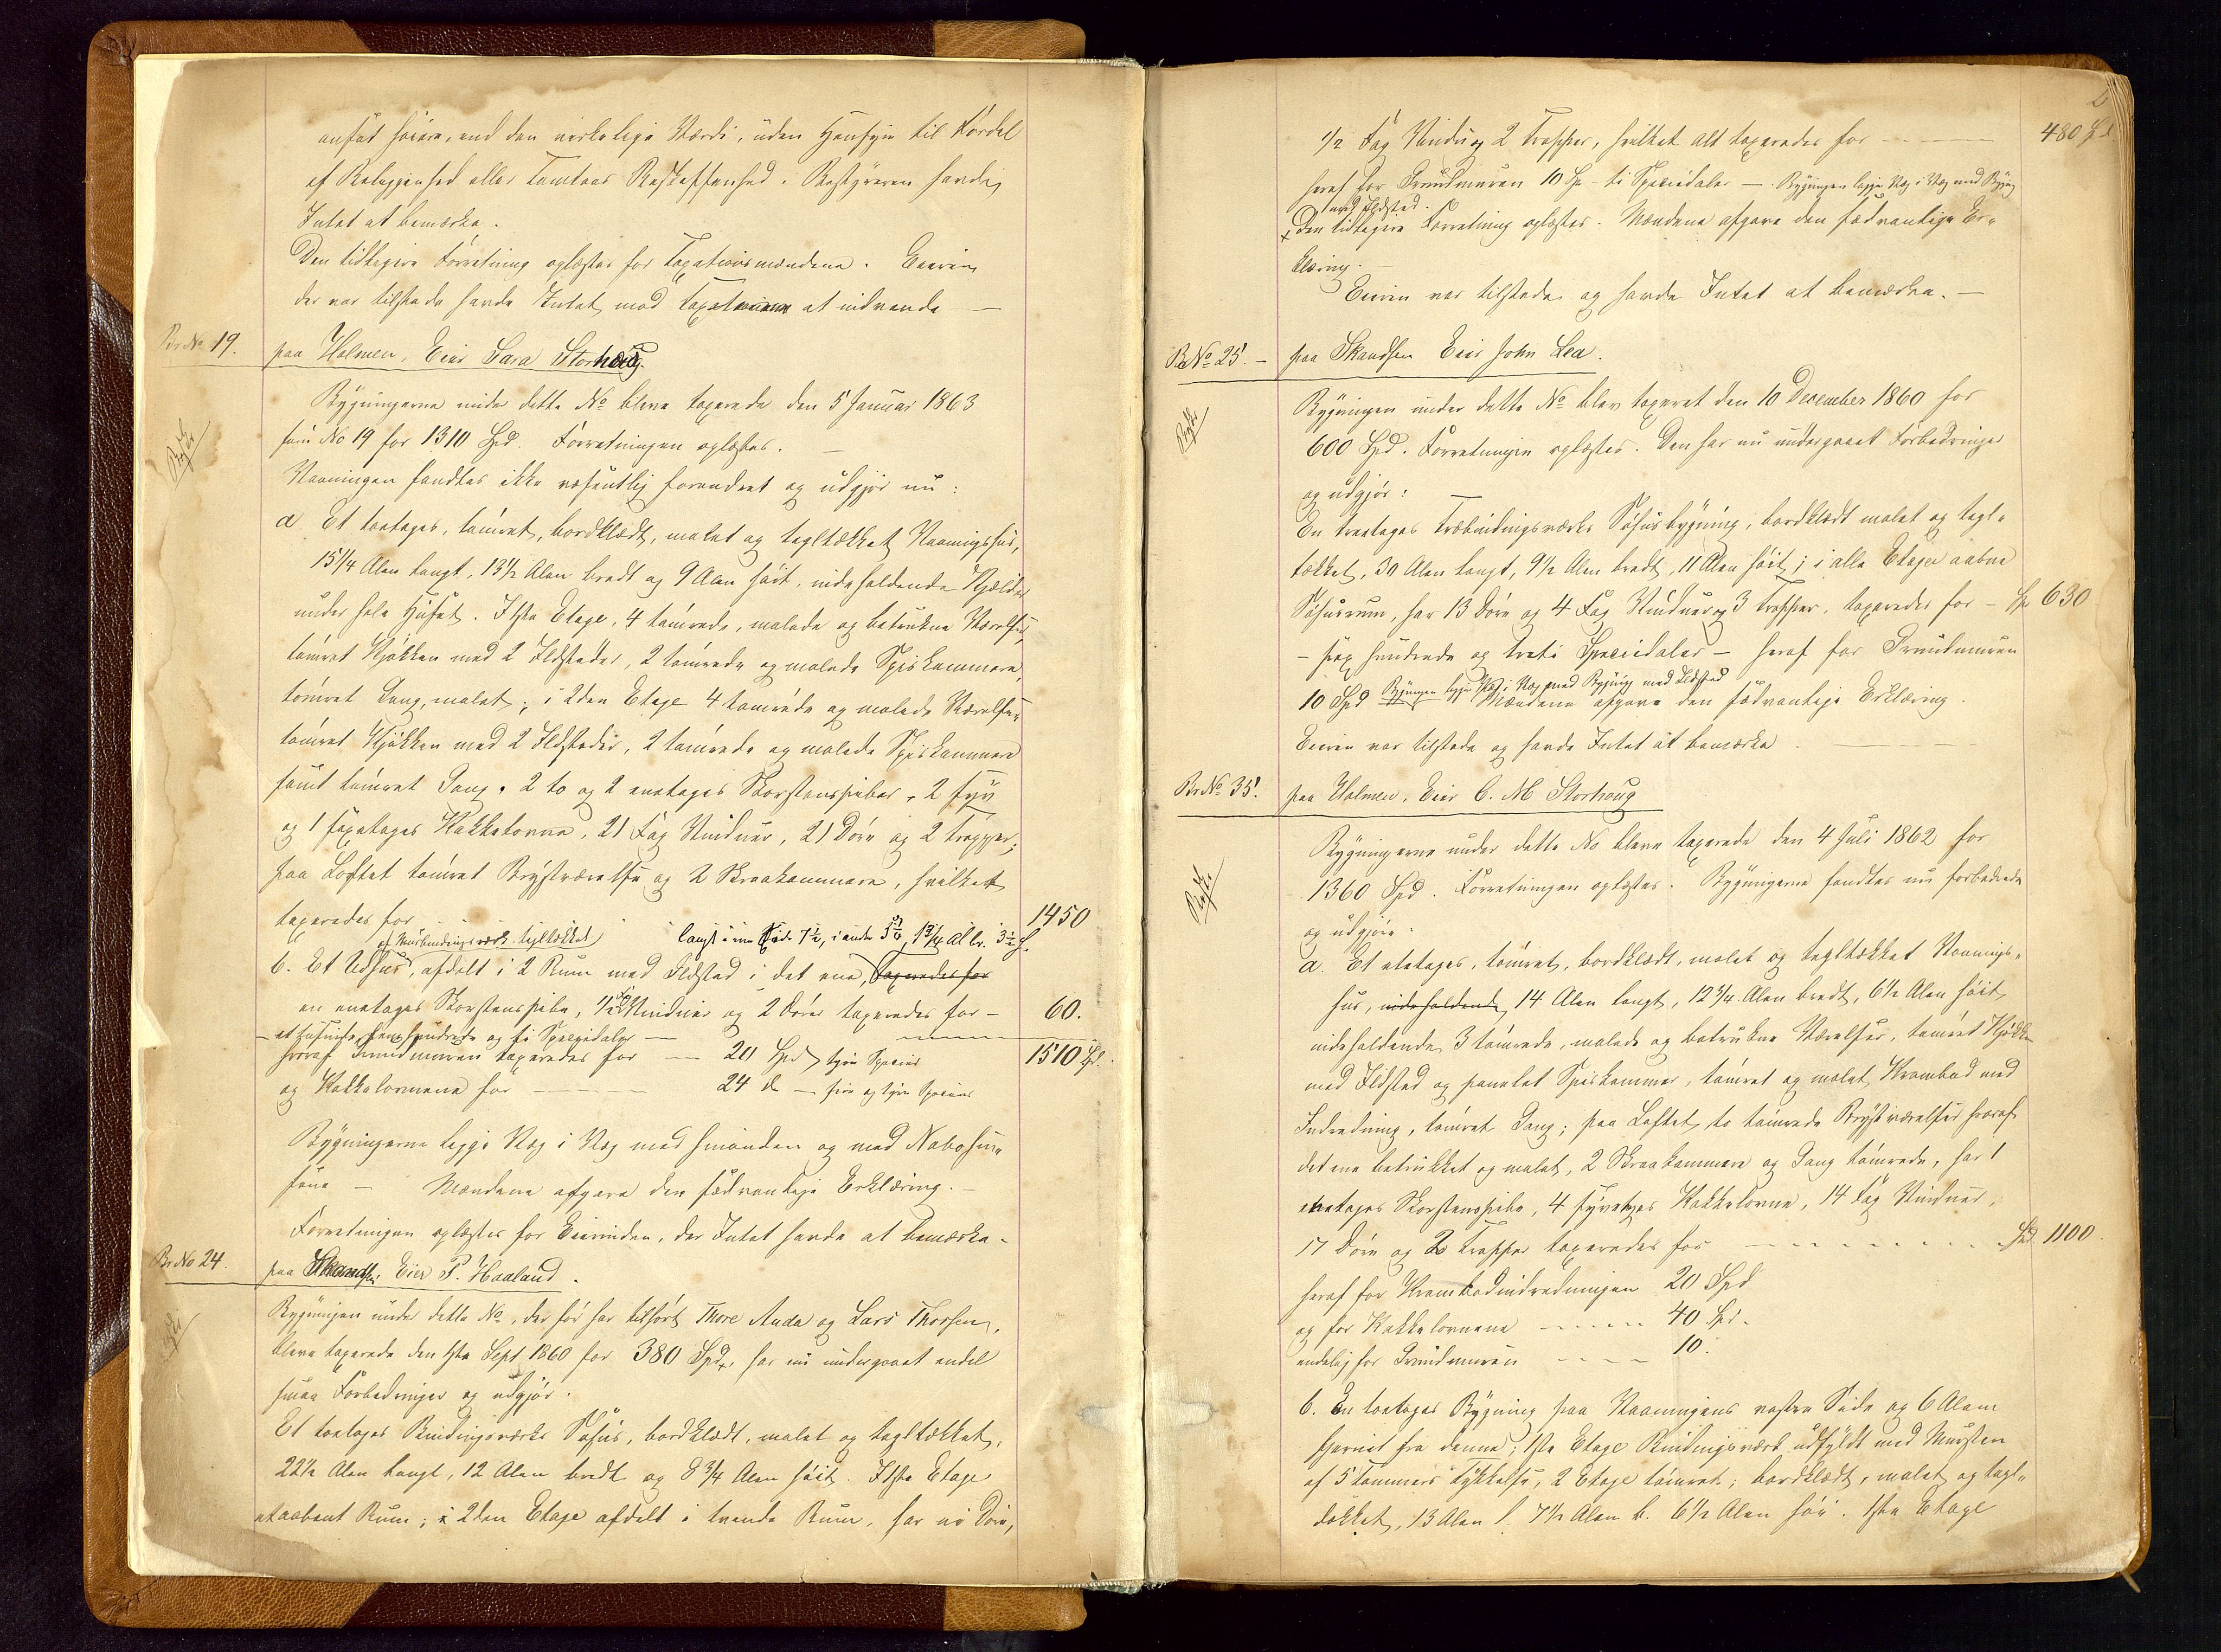 ansat høiere, end den virkelige Værdi, uden Hensyn til Fordel
af Beliggenhed eller Tomtens Beskaffenhed. Bestyreren havde
Intet at bemærke.
Den tidligere Forretning oplæstes for Taxationsmændene. Eieren
der var tilstede havde Intet mod Taxationen at indvende —
Br No 19. paa Holmen, Eier Sara Storhoug.
Bygningerne under dette No bleve taxerede den 5 Januar 1863
som No 19 for 1310 Spd. Forretningen oplæstes. —
Vaaningen fandtes ikke væsentlig forandret og udgjør nu:
a Et toetages, tømret, bordklædt, malet og tegltækket Vaaningshus,
15 1/4 Alen langt, 13 1/2 Alen bredt og 9 Alen høit, indeholdende Kjælder
under hele Huset. I 1ste Etage, 4 tømrede, malede og betrukne Værelser,
tømret Kjøkken med 2 Ildsteder, 2 tømrede og malede Spiskammere,
tømret Gang, malet; i 2den Etage 4 tømrede og malede Værelser,
tømret Kjøkken med 2 Ildsteder, 2 tømrede og malede Spiskammere
samt tømret Gang. 2 to og 2 enetages Skorstenspiber, 2 fyr
og 1 sexetages Kakkelovne, 21 Fag Vinduer, 21 Døre og 2 Trapper;
paa Loftet tømret Brystværelse og 2 Skraakammere, hvilket
taxeredes for 1450
af Murbindingsværk tegltækket langt i en Side 7 1/2, i anden
b. Et Udhus, afdelt i 2 Rum med Ildsted i det ene, taxeredes for
en enetages Skorstenspibe, 1 1/2 Fag Vinduer og 2 Døre taxeredes for — 60.
et tusinde fem hundrede og ti Speciedaler —
hvoraf Grundmuren taxeredes for — 20 Spd tyve Species 1510 Spd.
og Kakkelovnene for — 24 d — fire og tyve Species
Bygningerne ligge Væg i Væg med hinanden og med Nabohu-
sene — Mændene afgave den sædvanlige Erklæring. —
Forretningen oplæstes for Eierinden, der Intet havde at bemærke.
Br No 24. paa Skandsen Eier P. Haaland.
Bygningen under dette No, der før har tilhørt Thore Auda og Lars Thorsen,
bleve taxerede den 1ste Sept 1860 for 380 Spd, har nu undergaaet endel
smaa Forbedringer og udgjør.
Et toetages Bindingsværks Søhus, bordklædt, malet og tegltækket,
22 1/2 Alen langt, 12 Alen bredt og 8 3/4 Alen høit. I 1ste Etage
et aabent Rum; i 2den Etage afdelt i trende Rum, har ni Døre,
2
1/2 Fag Vindu og 2 Trapper, hvilket alt taxeredes for — 480 Spd
heraf for Grundmuren 10 Sp — ti Speciedaler — Bygningen ligger Væg i Væg med Bygning
med Ildsted.
Den tidligere Forretning oplæstes. Mændene afgave den sædvanlige Er-
klæring. —
Eieren var tilstede og havde Intet at bemærke. —
Br No 25. — paa Skandsen Eier John Lea.
Bygningen under dette No blev taxeret den 10 December 1860 for
600 Spd. Forretningen oplæstes. Den har nu undergaaet Forbedringer
og udgjør:
En treetages Træbindingsværks Søhusbygning, bordklædt malet og tegl-
tækket, 30 Alen langt, 9 1/2 Alen bredt, 11 Alen høit; i alle Etager aabne
Søhusrum, har 13 Døre og 4 Fag Vinduer og 3 Trapper, taxeredes for — Sp 630
— sex hundrede og treti Speciedaler — heraf for Grundmuren
10 Spd Bygningen ligger Væg i Væg med Bygning med Ildsted Mændene afgave den sædvanlige Erklæring.
Eieren var tilstede og havde Intet at bemærke. —
Br No 35. paa Holmen, Eier C. M Storhoug
Bygningerne under dette No bleve taxerede den 4 Juli 1862 for
1360 Spd. Forretningen oplæstes. Bygningerne fandtes nu forbedrede
og udgjøre:
a. Et etetages, tømret, bordklædt, malet og tegltækket Vaanings-
hus, indeholdende 14 Alen langt, 12 3/4 Alen bredt, 6 1/2 Alen høit,
indeholdende 3 tømrede, malede og betrukne Værelser, tømret Kjøkken
med Ildsted og panelet Spiskammer, tømret og malet Krambod med
Indredning, tømret Gang; paa Loftet to tømrede Brystværelser hvoraf
det ene betrukket og malet, 2 Skraakammere og Gang tømrede, har 1
enetages Skorstenspibe, 4 fyretages Kakkelovne, 14 Fag Vinduer,
17 Døre og 2 Trapper taxeredes for — Spd 1100.
heraf for Krambodindredningen 20 Spd
og for Kakkelovnene — 40 Spd.
endelig for Grundmuren — 10.
b. En toetages Bygning paa Vaaningens vestre Side og 6 Alen
fjernet fra denne; 1ste Etage Bindingsværk udfyldt med Mursten
af 5 Tommers Tykkelse, 2 Etage tømret; bordklædt, malet og tegl-
dækket, 13 Alen l. 7 1/2 Alen b. 6 1/2 Alen høi. 1ste Etage